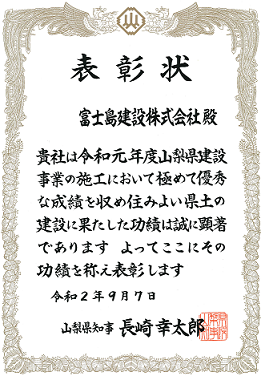 表彰状
富士島建設株式会社 殿
貴社は令和元年度山梨県建設
事業の施工において極めて優秀
な成績を収め住みよい県土の
建設に果たした功績は誠に顕著
であります よってここにその
功績を称え表彰します
令和2年9月7日
山梨県知事 長崎幸太郎